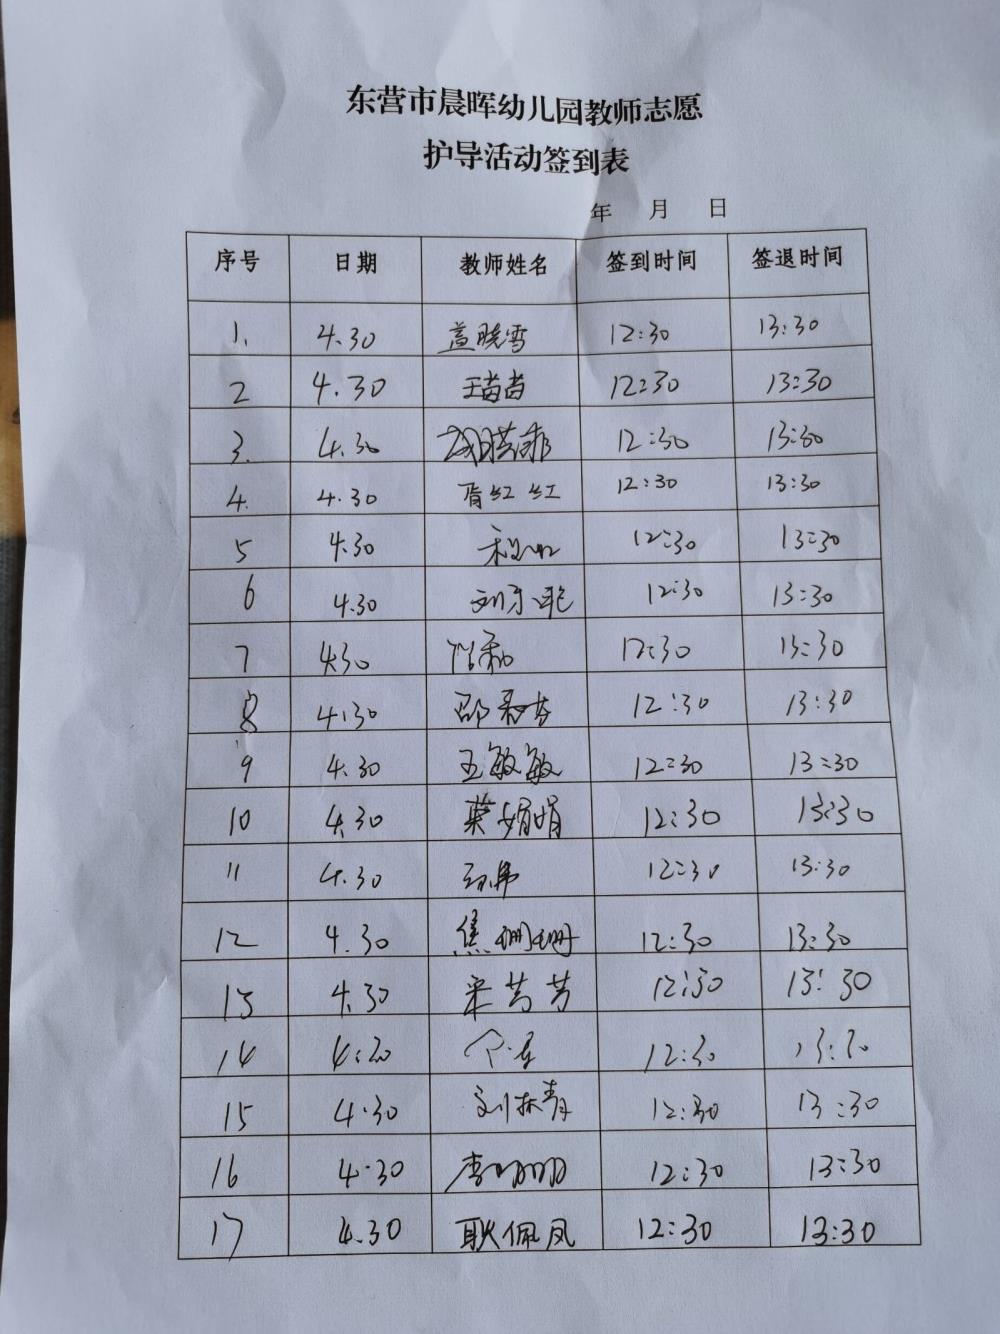 东营市晨晖幼儿园教师志愿
护导活动签到表
年 月 日
序号 日期 教师姓名 签到时间 签退时间
1. 4.30 盖晓雪 12:30 13:30
2 4.30 王苗苗 12:30 13:30
3. 4.30 12:30 13:30
4. 4.30 胥红红 12:30 13:30
5 4.30 12:30 13:30
6 4.30 12:30 13:30
7 4.30 12:30 13:30
8 4.30 12:30 13:30
9 4.30 王敏敏 12:30 13:30
10 4.30 娟娟 12:30 13:30
11 4.30 12:30 13:30
12 4.30 焦珊珊 12:30 13:30
13 4.30 芳芳 12:30 13:30
14 4.30 12:30 13:30
15 4.30 刘林青 12:30 13:30
16 4.30 李明明 12:30 13:30
17 4.30 耿佩凤 12:30 13:30